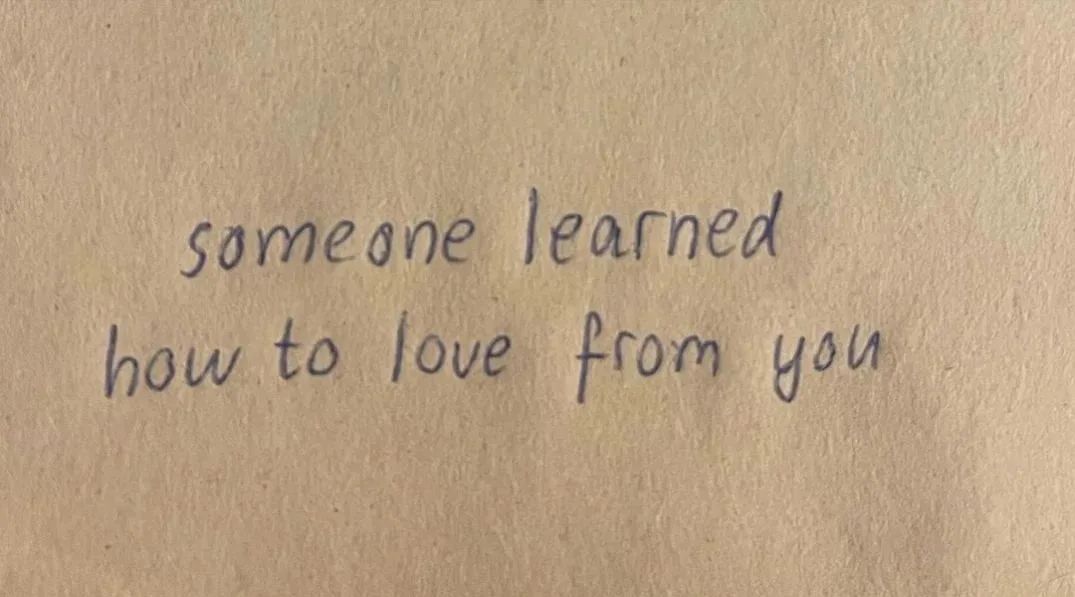 someone learned
how to love from you